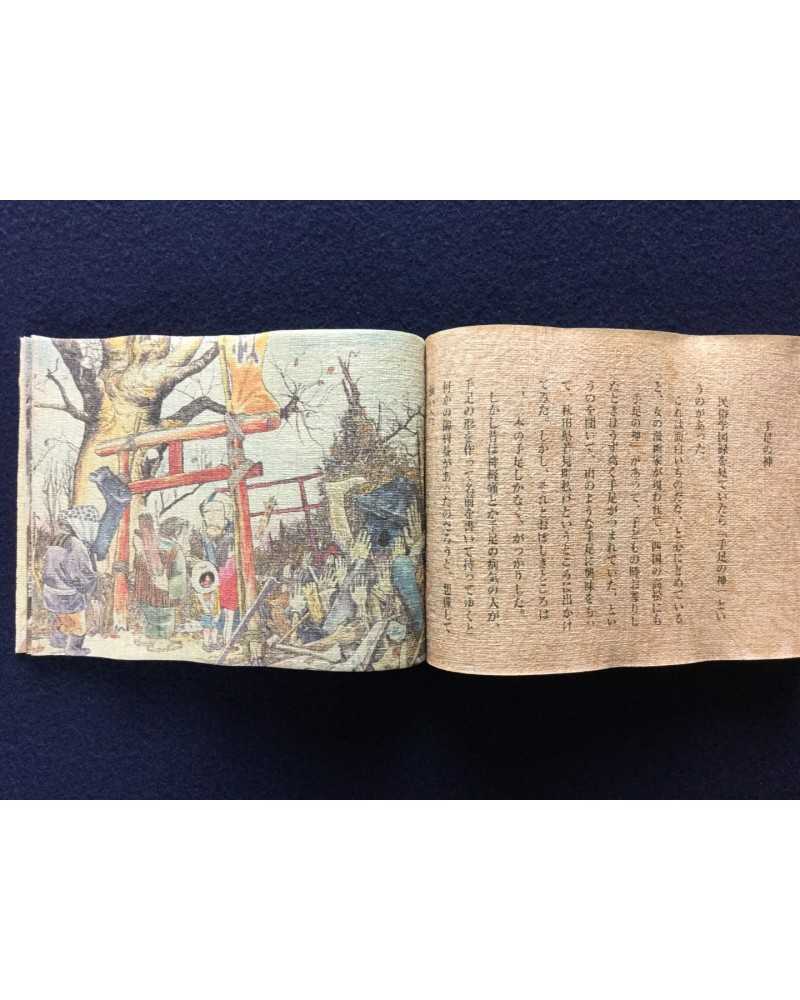 手足の神
民俗学図録を見ていたら「手足の神」とい
うのがあった。
これは面白いものだな、と心にきめている
と、女の漫画家が現われて、四国の高松にも
「手足の神」があって、子どもの時お参りし
たときはうず高く手足がつまれていた、とい
うのを聞いて、山のような手足に興味をもっ
て、秋田県
というところに出かけ
てみた。しかし、それとおぼしきところは
一、二本の手足しかなくて、がっかりした。
しかし昔は神経痛とか手足の病気の人が、
手足の形を作って名前を書いて持ってゆくと
何かの御利益があったのだろうと、想像して